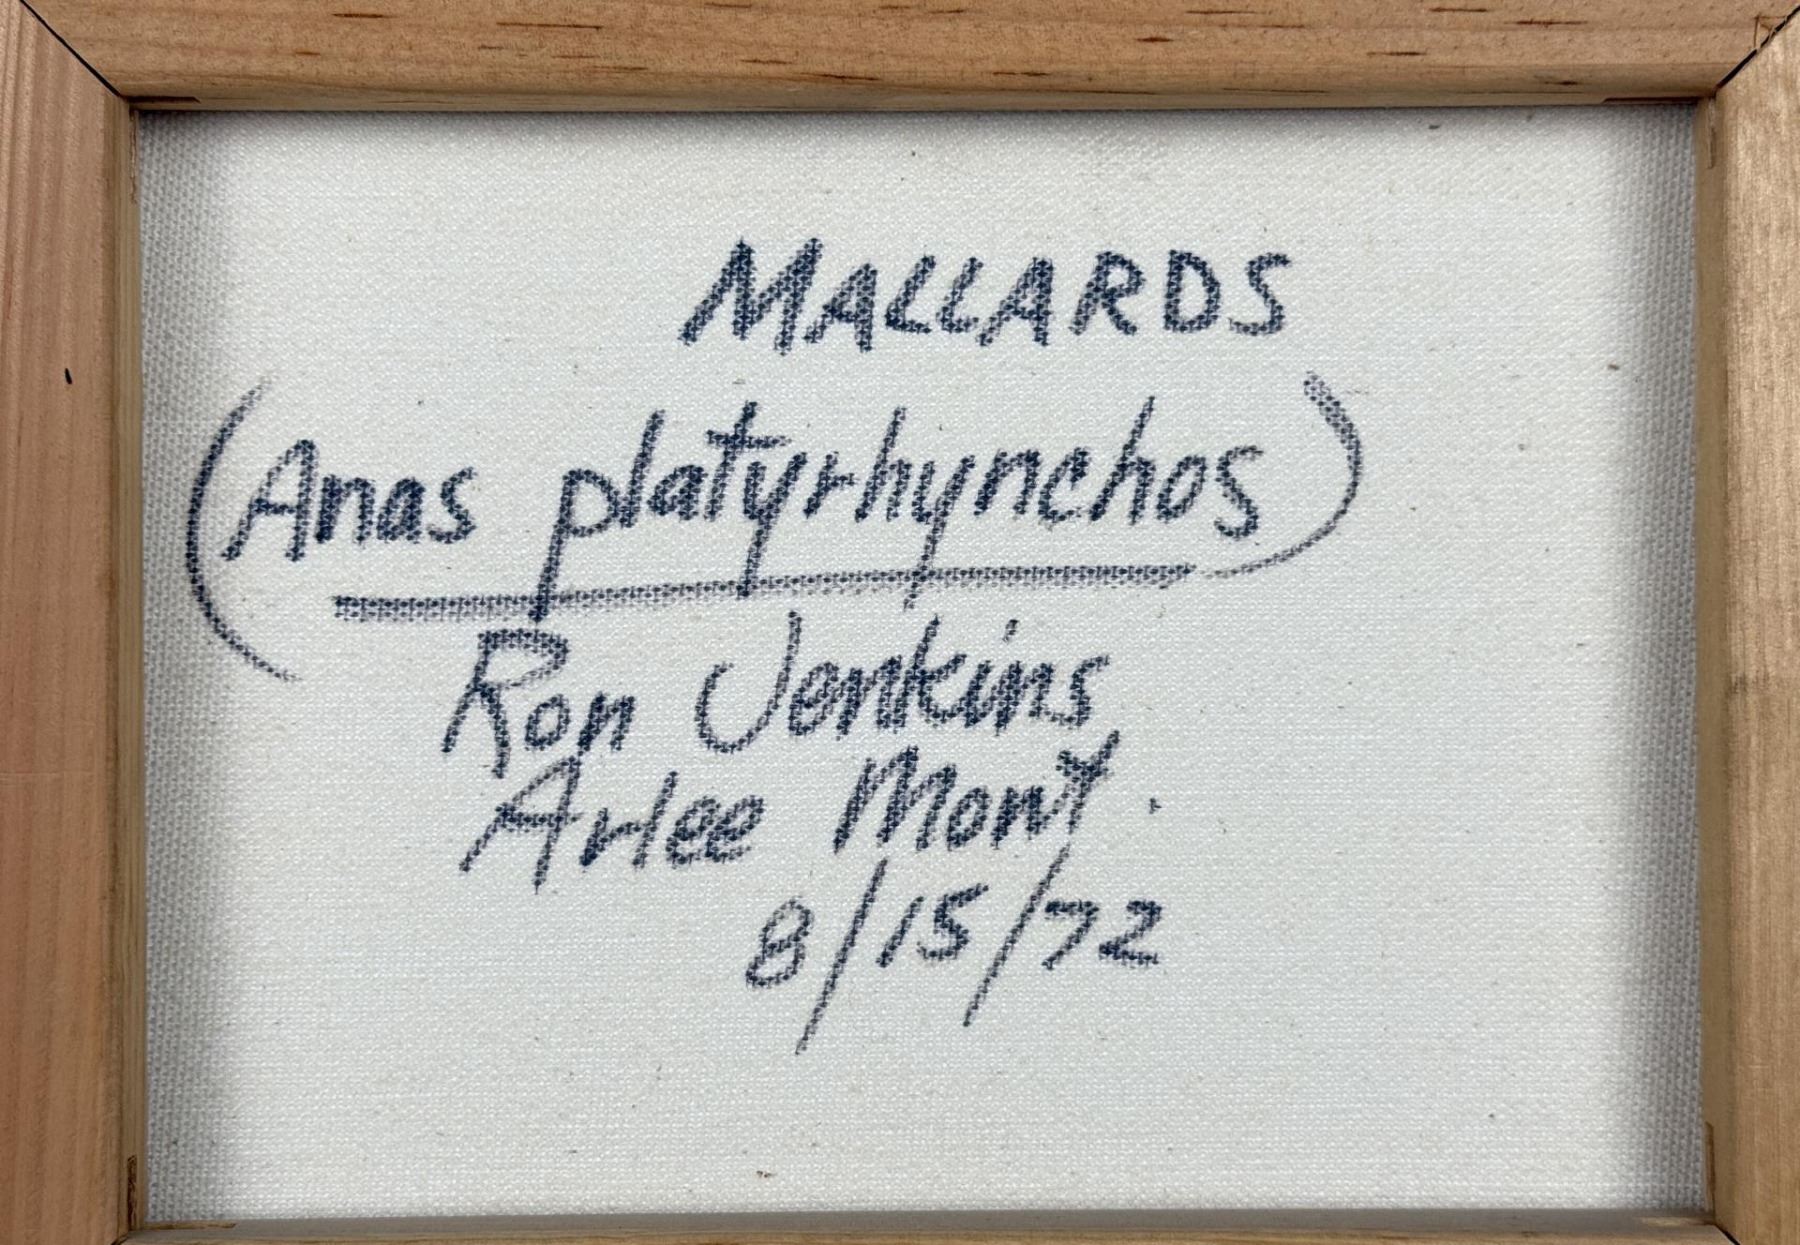 MALLARDS
(Anas platyrhynchos)
Ron Jenkins
Arlee Mont.
8/15/72